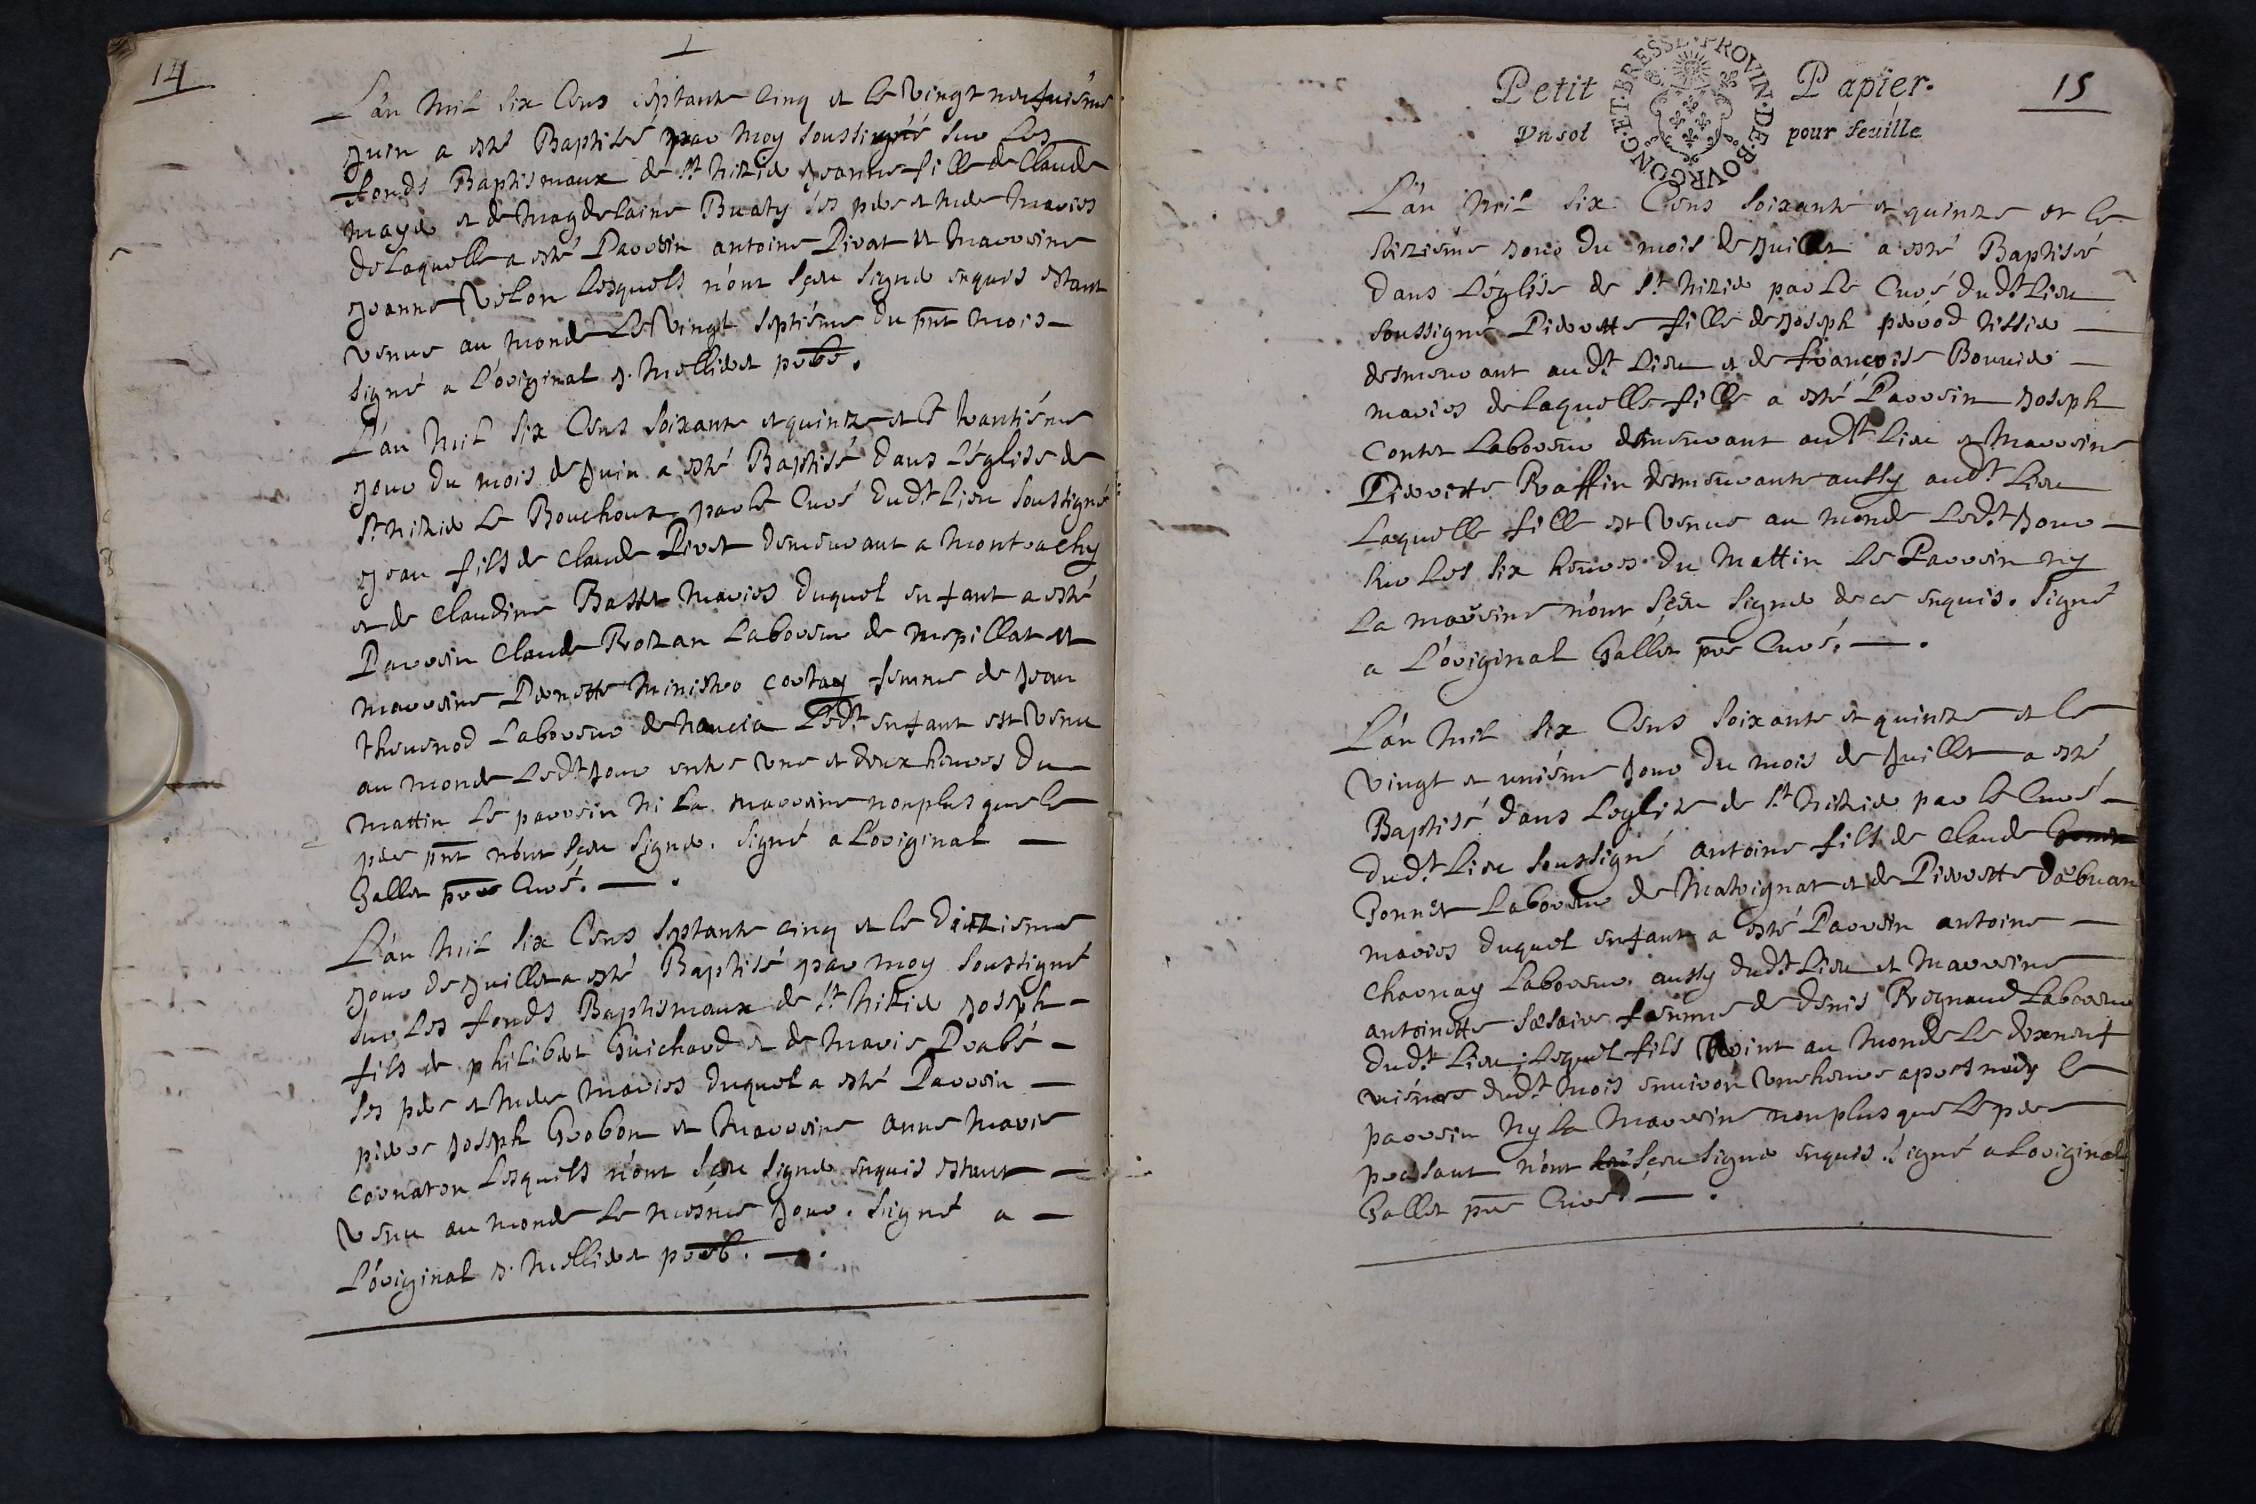 14
L'an mil six Cens septante cinq et le Vingt neufuiéme
Juin a esté Baptisée par Moy soussigné sur Les
fonds Baptismaux de St Nizie Jeanne fille de Claude
Maye et de Magdelaine Buaty ses pere et mere Maries
de Laquelle a esté Parrain antoine Pivat et Marraine
Jeanne Velon Lesquels n'ont sçeu signer enquis estant
venue au monde Le Vingt septiéme du pnt mois
signé a L'original J. Mellieret pbre.
L'an mil six Cens soixante et quinze et le trantiéme
jour du mois de Juin a esté Baptisé dans L'église de
St Nizie Le Bouchoux par le Curé dudt Lieu soussigné
Jean fils de Claude Pivet demeurant a Montrachy
et de Claudine Basset Maries duquel enfant a esté
Parrain Claude Rozan Laboureur de Mepillat et
Marraine Pernette Ministre femme de Jean
Thevenod Laboureur de Nancia Ledt enfant est Venu
au monde Ledt Jour entre Une et deux heures du
Mattin Le parrain Ni La marraine nonplus que le
pere pnt n'ont sçeu signer. signé a L'original
Gallet pre Curé.
L'an mil six Cens septante cinq et le Dixziéme
jour de Juillet a esté Baptisé par moy soussigné
sur Les fonds Baptismaux de St Nizie Joseph
fils de philibert Guichard et de Marie Drabé
ses pere et mere Maries duquel a esté Parrain
pierre Joseph Grobon et Marraine anne Marie
Cornaton Lesquels n'ont sçeu signer enquis estant
Venu au monde Le mesme Jour. signé a
L'original J. Mellieret preb.
Petit Papier.
Vn sol pour feuille
ET·BRESSE·PROVIN·DE·BOVRGONG·
15
L'an mil six Cens soixante et quinze et le
seiziéme Jour du mois de Juillet a esté Baptisée
dans L'église de St Nizie par Le Curé dudt Lieu
soussigné Pierrette fille de Joseph pvod tissier
demeurant audt Lieu et de françoise Bouvier
maries de Laquelle fille a esté Parrain Joseph
Contet Laboureur demeurant audt Lieu et Marraine
Pierrette Raffin demeurante aussy audt Lieu
Laquelle fille est Venue au monde Ledt Jour
sur Les six heures du Mattin Le Parrain ny
La marraine n'ont sçeu signer de ce enquis. signé
a L'original Gallet pre Curé.
L'an mil six Cens soixante et quinze et le
Vingt et uniéme Jour du mois de Juillet a esté
Baptisé dans Leglize de St Nizie par le Curé
dudt Lieu soussigné antoine fils de Claude
Gonnet Laboureur de Malvignat et de Pierrette Debuan
maries duquel enfant a esté Parrain antoine
Charnay Laboureur aussy dudt Lieu et Marraine
antoinette Saesaire femme de Denis Regnaud Laboureur
dudt Lieu; Lequel fils Vint au Monde Le dixneuf
uiéme dudt mois enuiron Une heure apres midy le
parrain Ny La Marraine nonplus que Le pere
present n'ont sçeu signer enquis. signé a L'original
Gallet pre Curé.